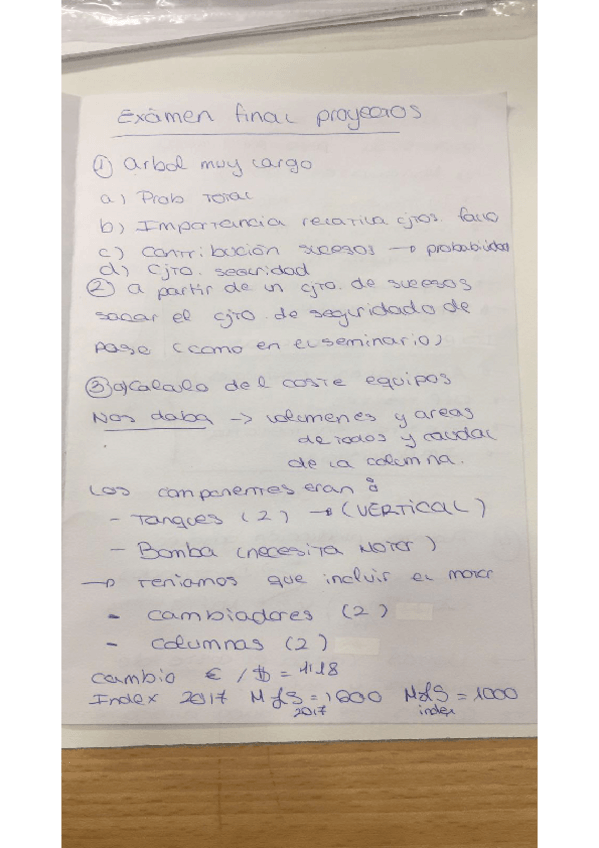 Exámen final proyectos
① arbol muy largo
a) Prob total
b) Importancia relativa cjtos fallo
c) contribución sucesos → probabilidad
d) cjto. seguridad
② a partir de un cjto. de sucesos
sacar el cjto. de seguridado de
paso (como en el seminario)
③ a) calculo del coste equipos
Nos daba → volumenes y areas
de todos y caudal
de la columna.
Los componentes eran :
- Tanques (2) → (VERTICAL)
- Bomba (necesita MOTOR)
→ teniamos que incluir el motor
- cambiadores (2)
- columnas (2)
cambio € / $ = 1'18
Index 2017 M&S 2017 = 1600 M&S index = 1000